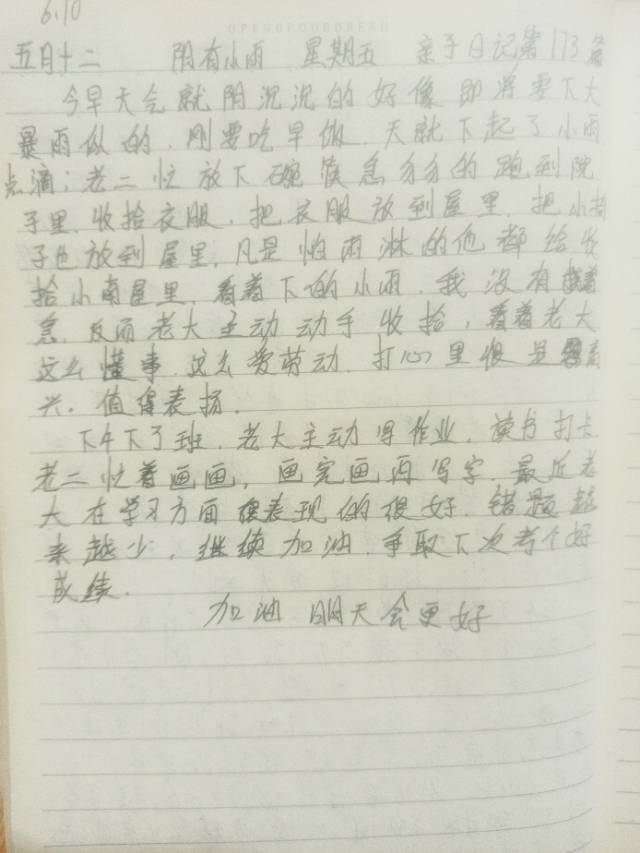 6.10
OPENOFOURDREAM
五月十二 阴有小雨 星期五 亲子日记第173篇
今早天气就阴沉沉的好像即将要下大
暴雨似的，刚要吃早饭，天就下起了小雨
点滴；老二忙放下碗筷急匆匆的跑到院
子里，收拾衣服，把衣服放到屋里，把小
子也放到屋里，凡是怕雨淋的他都给收
拾小南屋里，看着下的小雨，我没有着
急，反而老大主动动手收拾，看着老大
这么懂事，这么爱劳动，打心里很是高
兴。值得表扬。
下午下了班，老大主动写作业，读书打卡
老二忙着画画，画完画再写字，最近老
大在学习方面表现的很好，错题越
来越少，继续加油，争取下次考个好
成绩。
加油 明天会更好